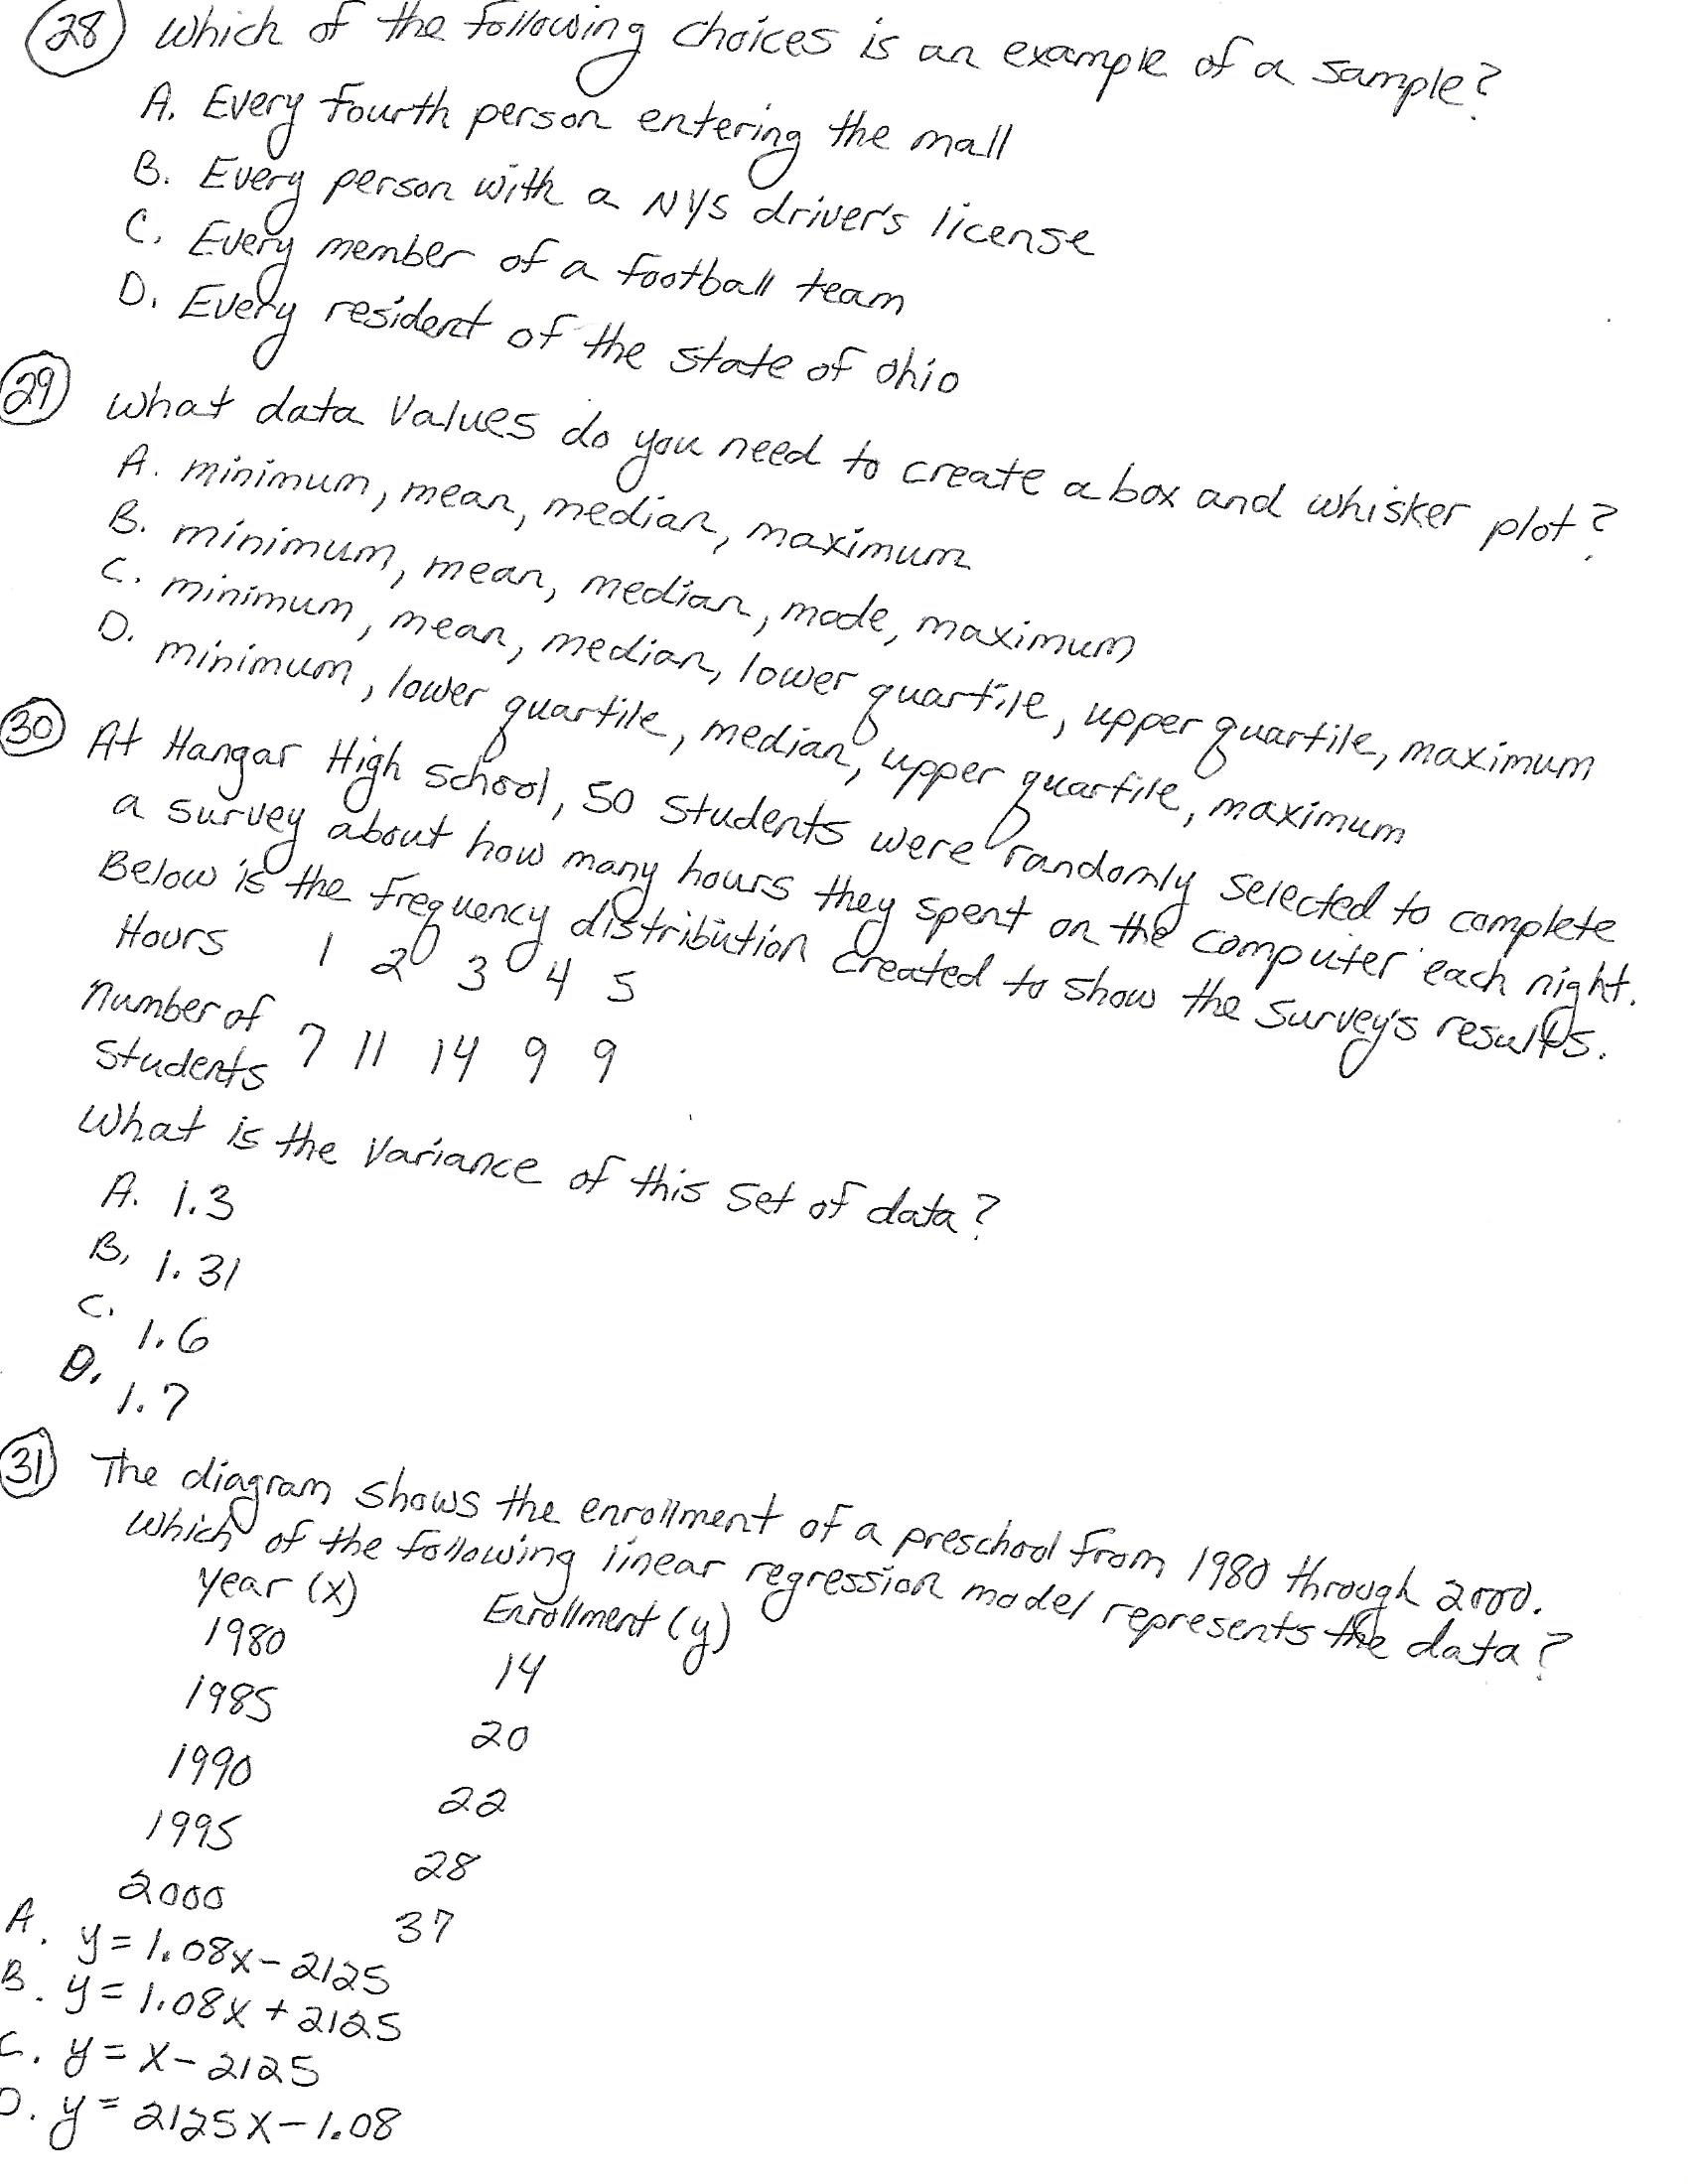 28 Which of the following choices is an example of a sample?
A. Every fourth person entering the mall
B. Every person with a NYS driver's license
C. Every member of a football team
D. Every resident of the state of Ohio
29 What data values do you need to create a box and whisker plot?
A. minimum, mean, median, maximum
B. minimum, mean, median, mode, maximum
C. minimum, mean, median, lower quartile, upper quartile, maximum
D. minimum, lower quartile, median, upper quartile, maximum
30 At Hangar High School, 50 students were randomly selected to complete
a survey about how many hours they spent on the computer each night.
Below is the frequency distribution created to show the survey's results.
Hours 1 2 3 4 5
Number of
Students 7 11 14 9 9
What is the variance of this set of data?
A. 1.3
B. 1.31
C. 1.6
D. 1.7
31 The diagram shows the enrollment of a preschool from 1980 through 2000.
Which of the following linear regression model represents the data?
Year (x) Enrollment (y)
1980 14
1985 20
1990 22
1995 28
2000 37
A. y = 1.08x - 2125
B. y = 1.08x + 2125
C. y = x - 2125
D. y = 2125x - 1.08